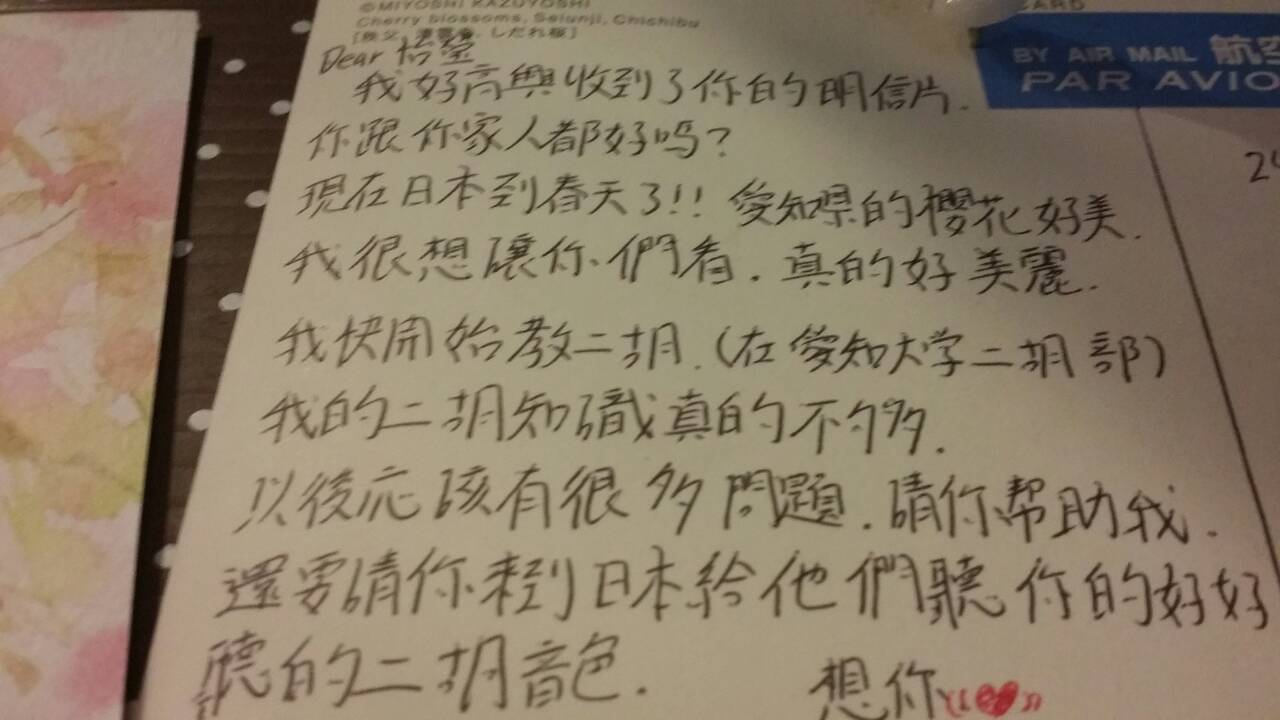 ©MIYOSHI KAZUYOSHI
Cherry blossoms, Seiunji, Chichibu
[秩父 清雲寺 しだれ桜]
CARD
BY AIR MAIL 航空
PAR AVIO
Dear 怡莹
我好高興收到了你的明信片.
你跟你家人都好吗?
現在日本到春天了!! 愛知県的櫻花好美.
我很想讓你們看. 真的好美麗.
我快開始教二胡.(在愛知大学二胡部)
我的二胡知識真的不够.
以後応該有很多問題. 請你帮助我.
還要請你来到日本給他們聽你的好好
聽的二胡音色.
想你